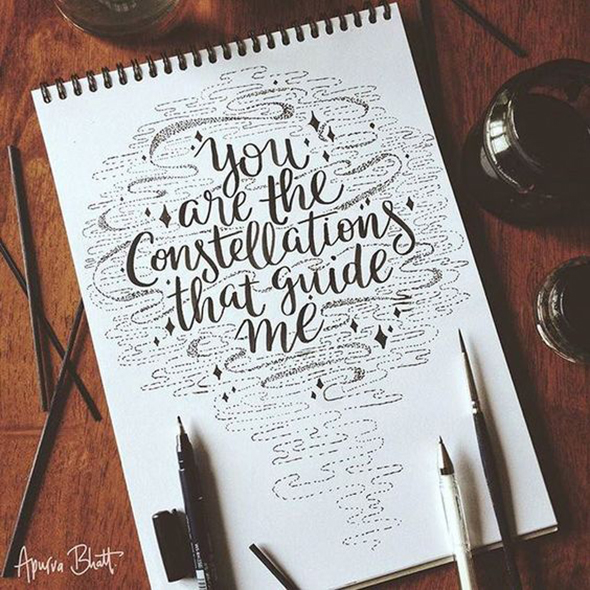 you
are the
Constellations
that guide
me
Apurva Bhatt